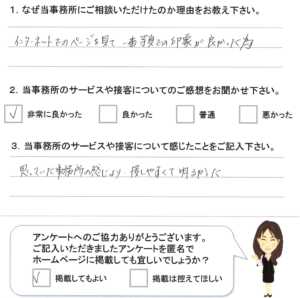 1. なぜ当事務所にご相談いただけたのか理由をお教え下さい。
インターネットでのページを見て 一番 印象が良かった為
2. 当事務所のサービスや接客についてのご感想をお聞かせ下さい。
✓ 非常に良かった 良かった 普通 悪かった
3. 当事務所のサービスや接客について感じたことをご記入下さい。
思っていた事務所の感じより 話しやすくて 明るかった
アンケートへのご協力ありがとうございます。
ご記入いただきましたアンケートを匿名で
ホームページに掲載しても宜しいでしょうか?
✓ 掲載してもよい 掲載は控えてほしい